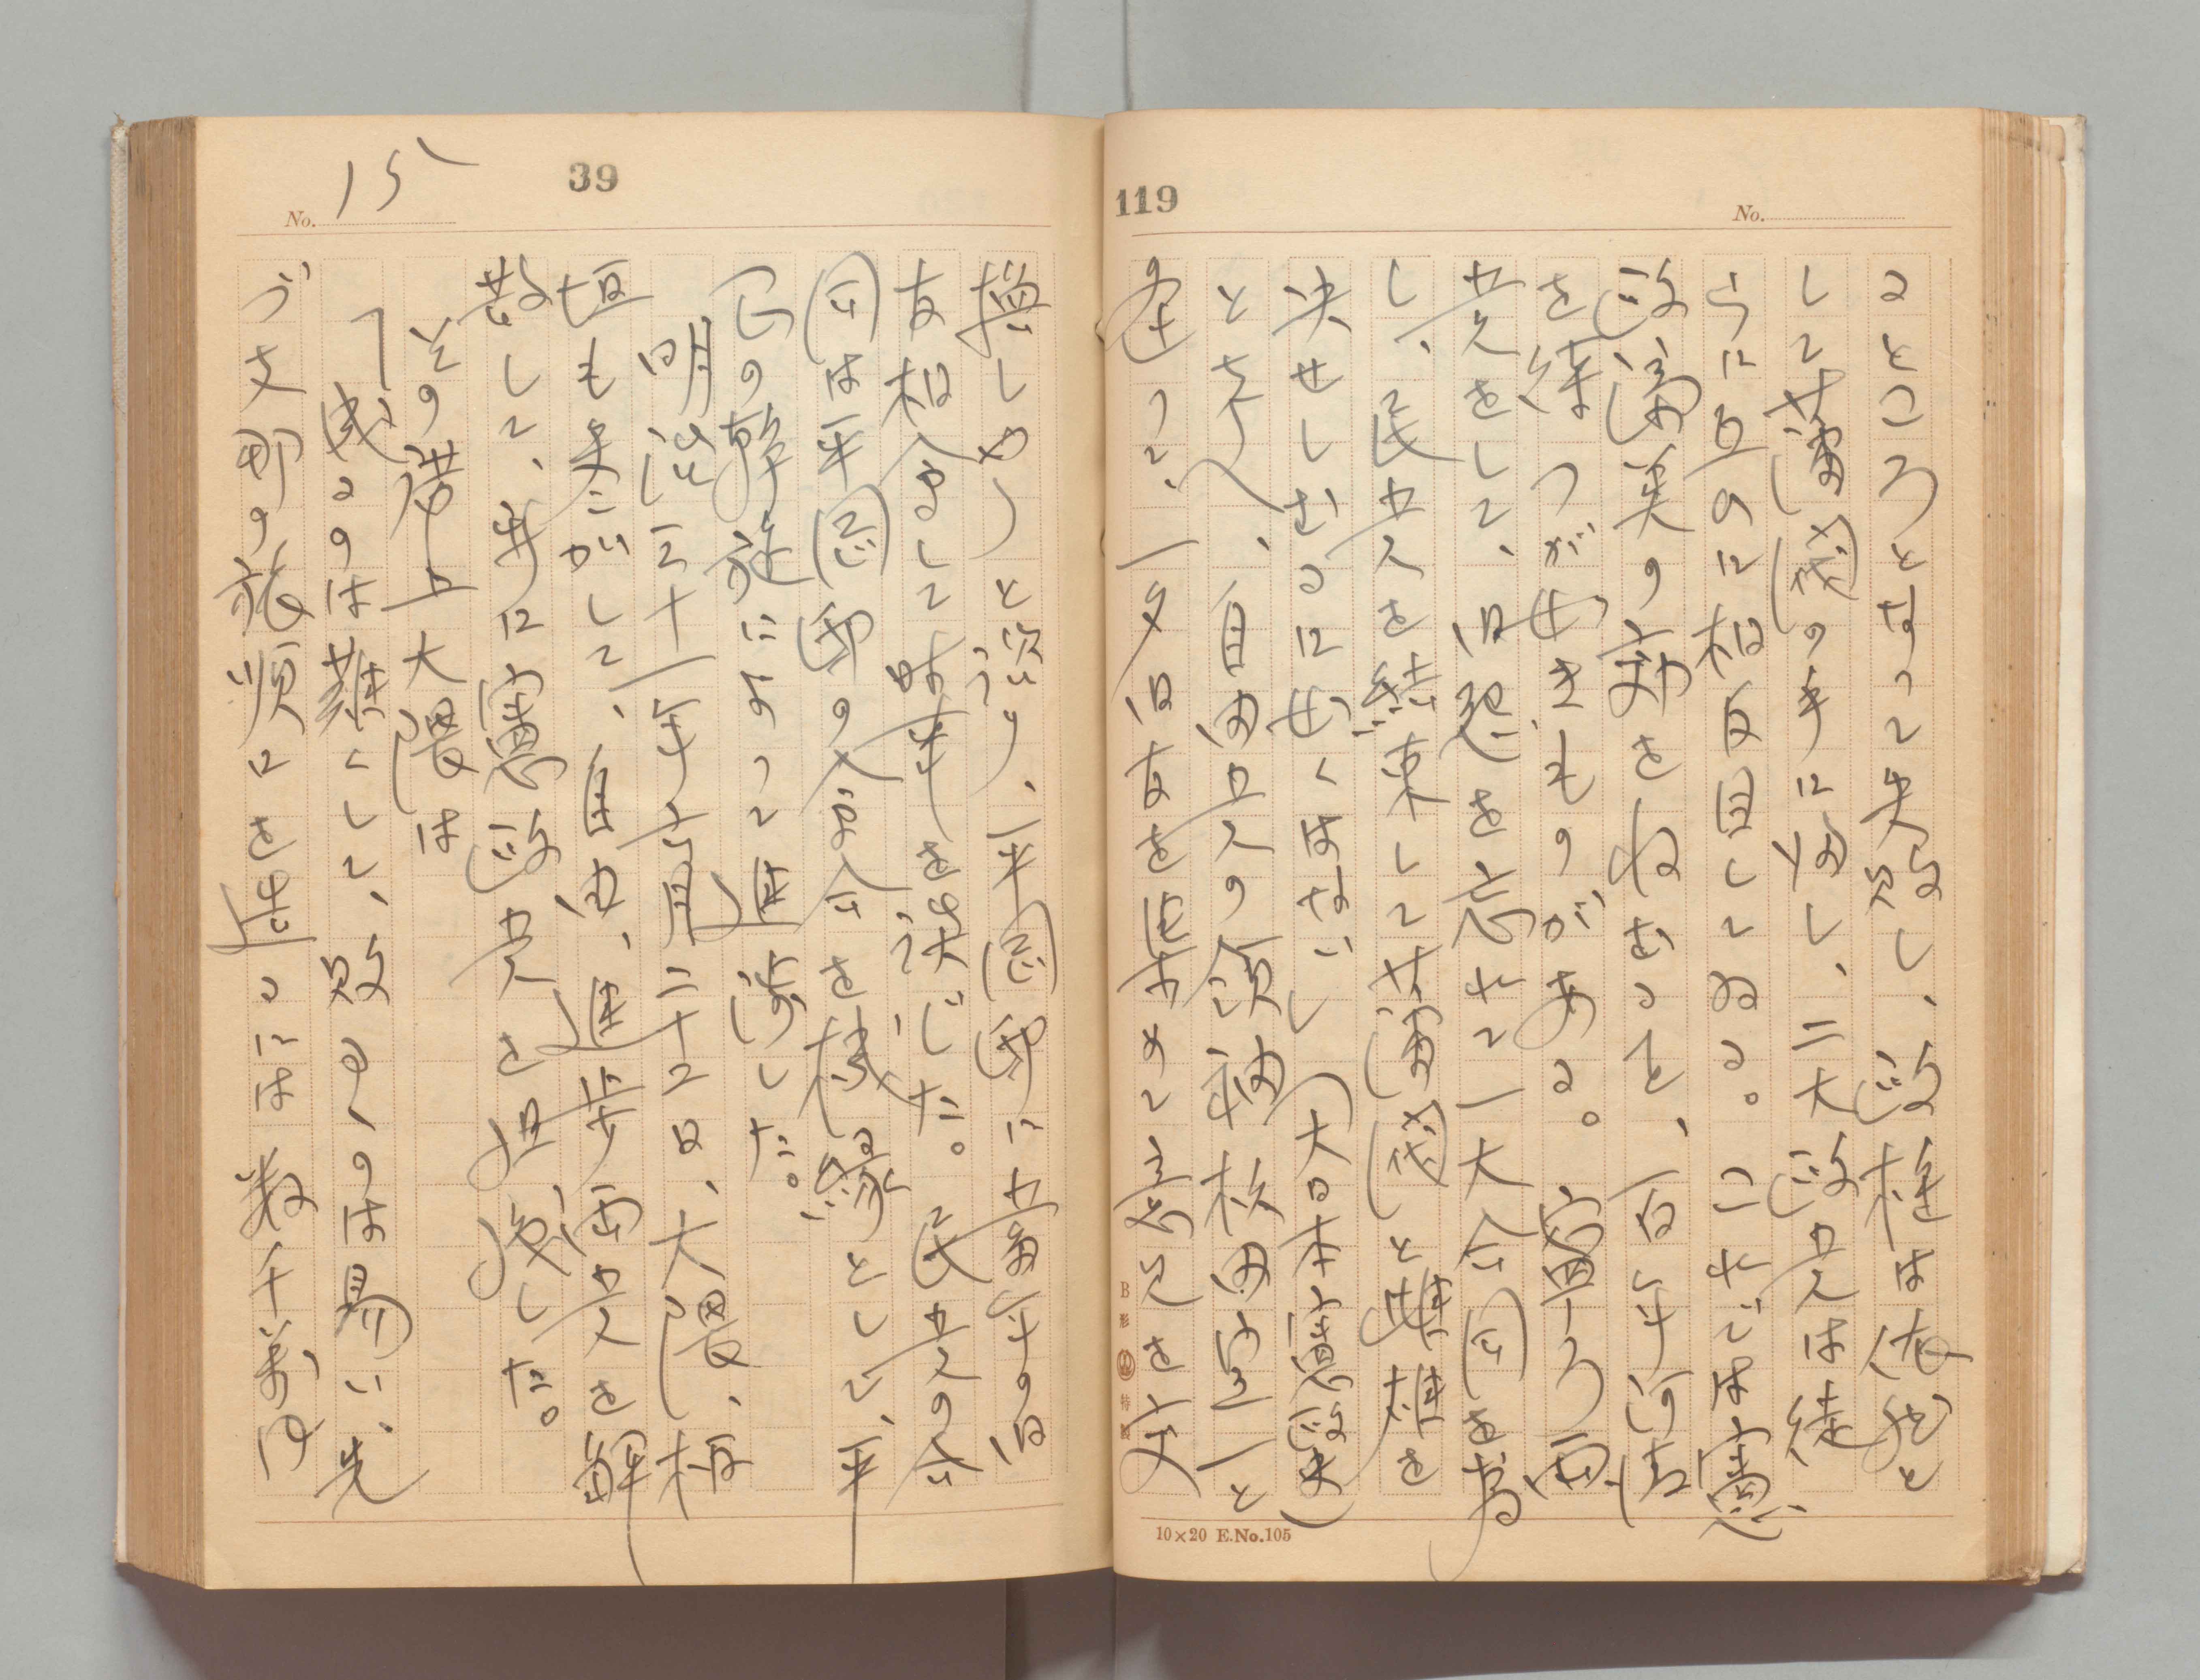 119
No.
るところとなって失敗し、政権は依然と
して藩閥の手に帰し、二大政党は徒
らに互のに相反目してゐる。これでは憲
政済美の効をねむること、百年河清
を待つが如きものがある。寧ろ両
党をして、旧怨を忘れて一大合同を為
し、民党を結束して藩閥と雌雄を
決せしむるに如くはない」(大日本憲政史)
と考へ、自由党の領袖杉田定一と
逢って、一夕旧友を集めて意見を交
10×20 E.No.105
39
No. 15
換しやうと語り、平岡邸に当年の旧
友相会して時事を談じた。民党の合
同は平岡邸の会を機縁として、平
岡の斡旋によって進渉した。
明治三十一年六月二十二日、大隈、板
垣も して、自由、進歩両党を解
散して、茲に憲政党を組織した。
その席上大隈は
「成るのは難くして、敗るゝのは易い、先
づ支那の旅順にを造るには数千萬円